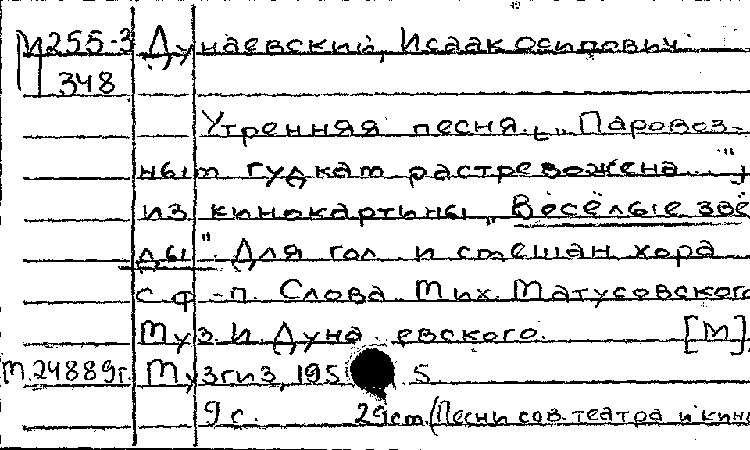 М255-3 Дунаевский, Исаак Осипович
348
Утренняя песня. [„Паровоз-
ным гудком растревожена..."]
из кинокартины „Весёлые звё-
зды". Для гол. и смешан. хора
с ф.-п. Слова Мих. Матусовского
Муз. И. Дунаевского. [М],
М.24889г. Музгиз, 1955
9 с. 29cm (Песни сов. театра и кино